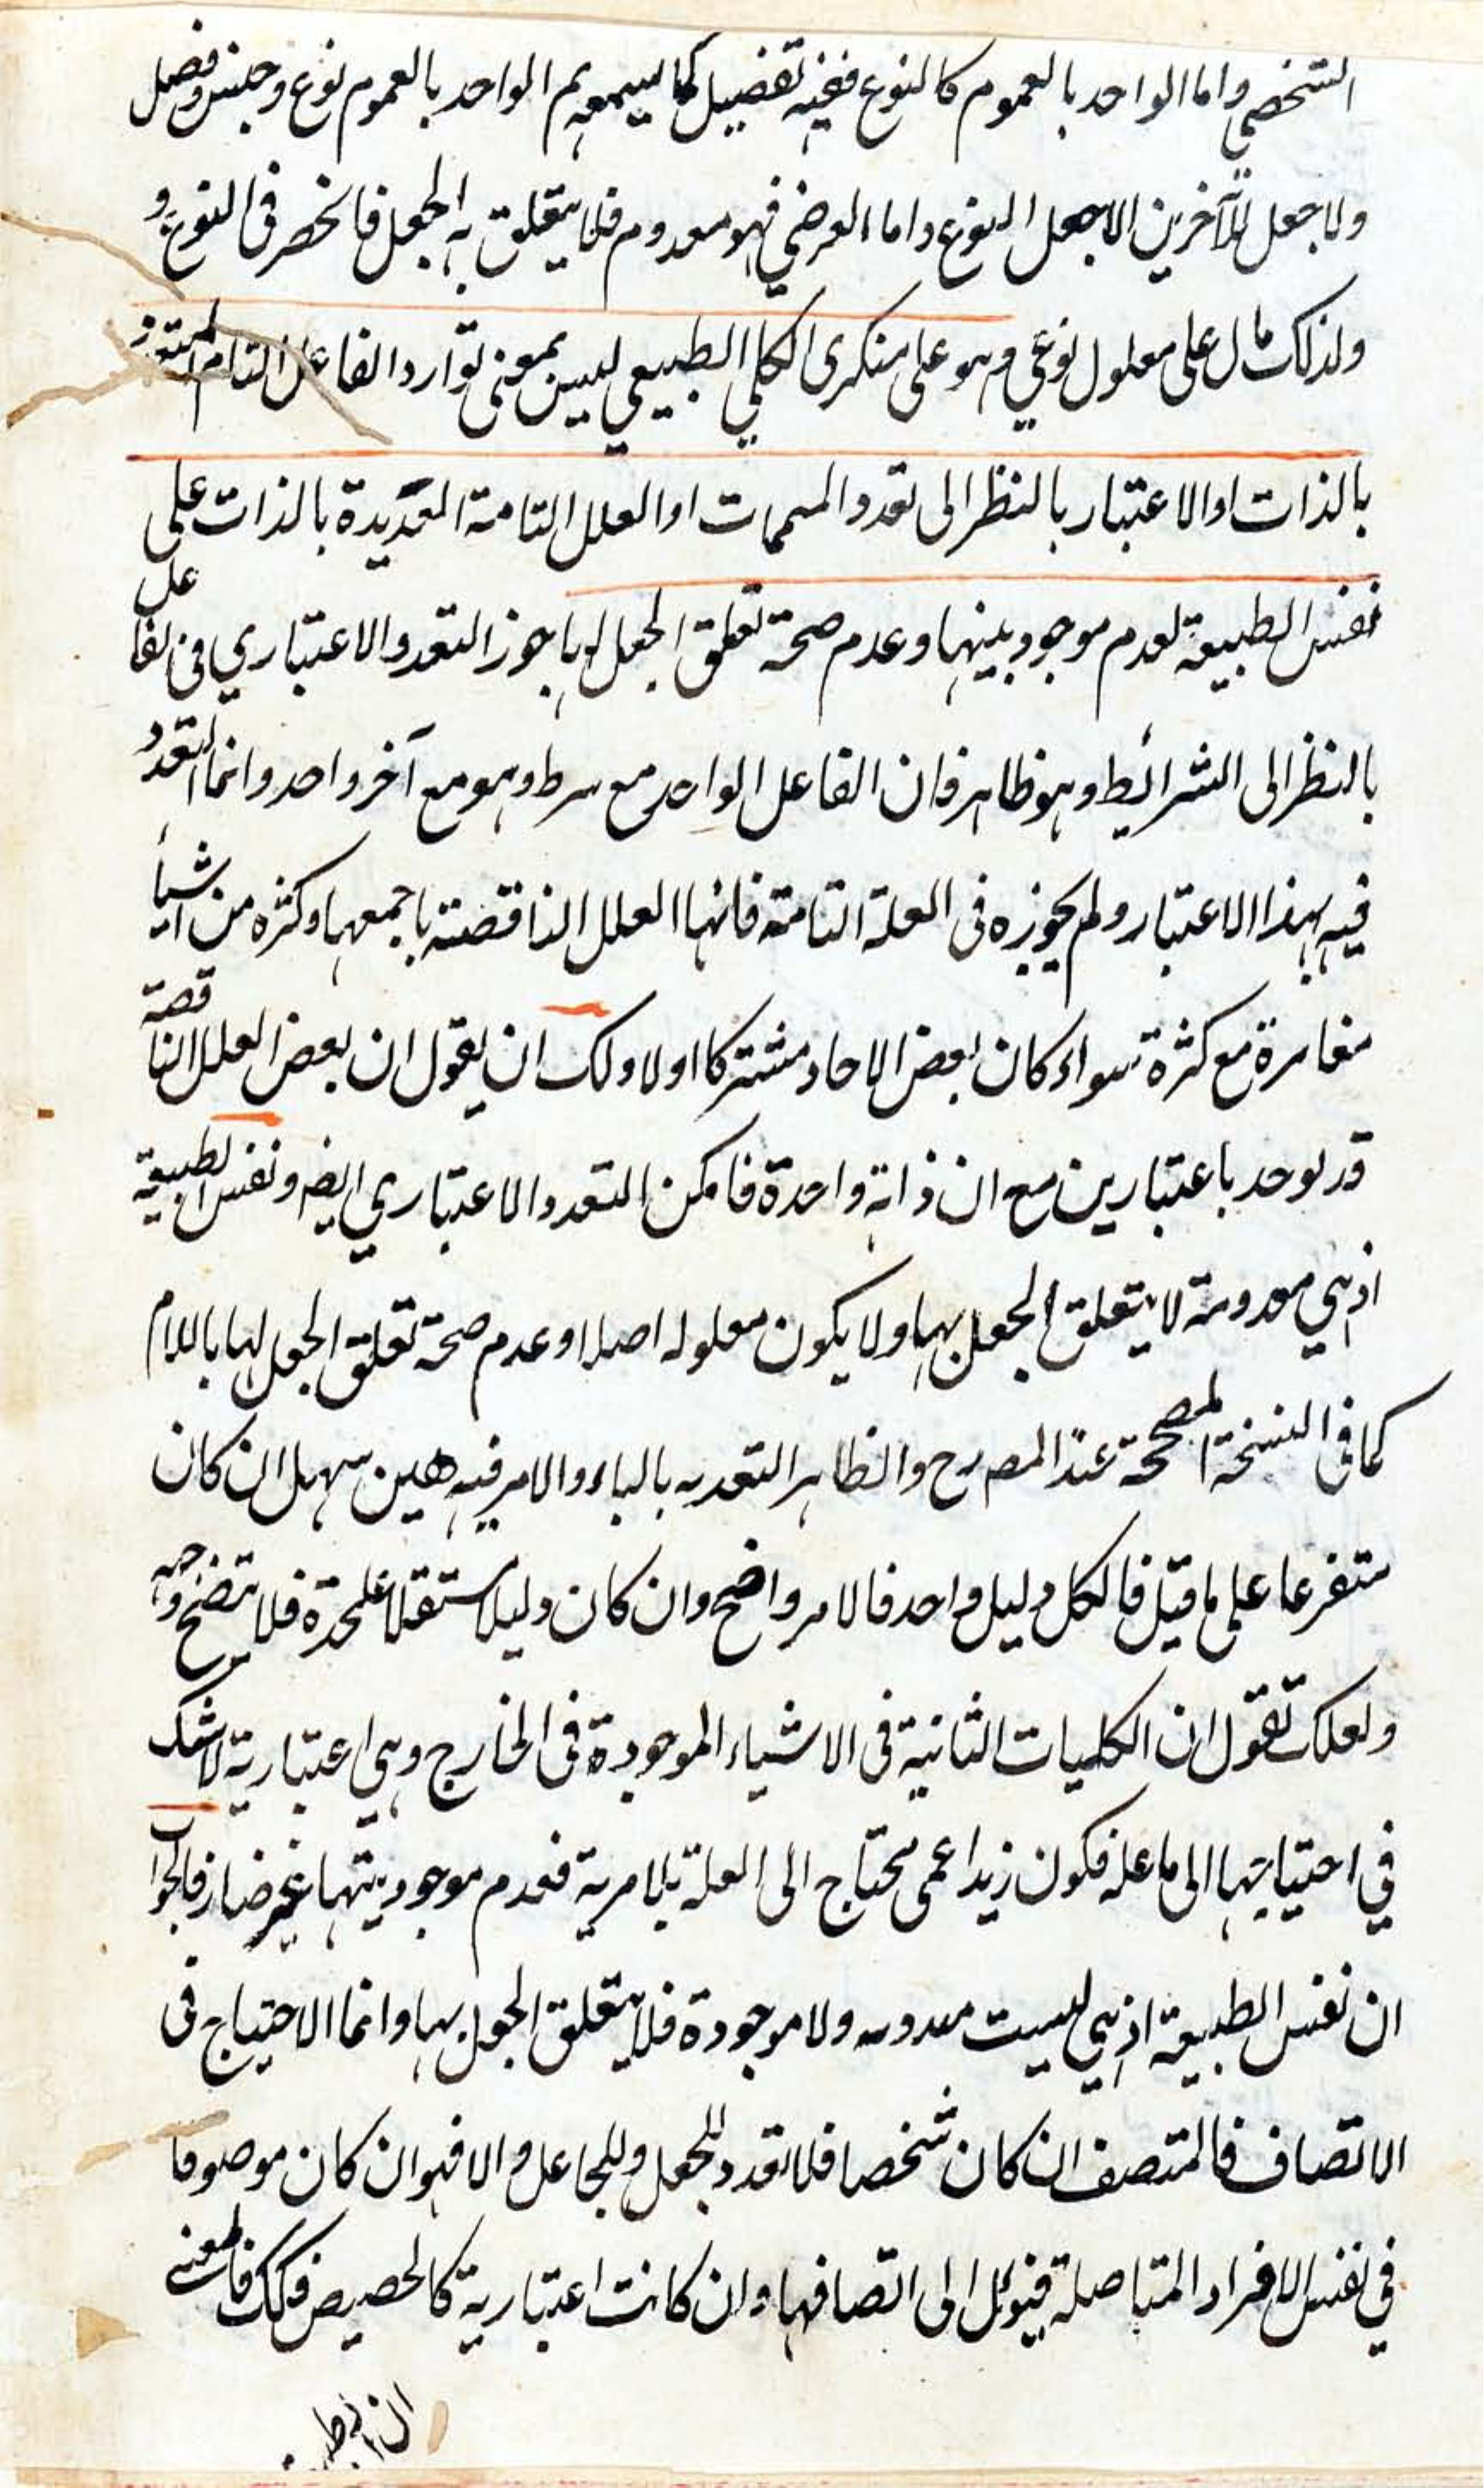 الشخصي واما الواحد بالعموم كالنوع ففيه تفضيل كما سيمعه ثم الواحد بالعموم نوع وجنس وفصل
ولا جعل للآخرين الا بجعل النوع واما العرضي فهو معدوم فلا يتعلق به الجعل فانحصر في النوع و
ولذلك قال على معلول نوعي وهو على منكري الكلي الطبيعي ليس بمعنى توارد الفاعل التام المتعدد
بالذات او الاعتبار بالنظر الى تعدد المتممات او العلل التامة العديدة بالذات على
نفس الطبيعة لعدم موجوديتها وعدم صحة تعلق الجعل لها جوز التعدد الاعتباري في الفاعل
بالنظر الى الشرائط وهو ظاهر فان الفاعل الواحد مع شرط وهو مع آخر واحد وانما التعدد
فيه بهذا الاعتبار ولم يجوزه في العلة التامة فانها العلل الناقصة باجمعها وكثرة من اشياء
مغايرة مع كثرة سواء كان بعض الاحاد مشتركا اولا ولك ان يقول ان بعض العلل الناقصة
قد يوجد باعتبارين مع ان ذاته واحدة فامكن التعدد الاعتباري ايضه ونفس الطبيعة
اذ هي معدومة لا يتعلق الجعل بها ولا يكون معلوله اصلا وعدم صحة تعلق الجعل لها باللام
كما في النسخة المصححة عند المصرح والظاهر التعديه بالباء والامر فيه هين سهل ان كان
متفرعا على ما قيل فالكل دليل واحد فالامر واضح وان كان دليلا مستقلا علحدة فلا يتضح وجهه
ولعلك تقول ان الكليات الثانية في الاشياء الموجودة في الخارج وهي اعتبارية لا شك
في احتياجها الى ما علة فكون زيد اعمى محتاج الى العلة بلا مرية فعدم موجوديتها غير ضار فالجواب
ان نفس الطبيعة اذ هي ليست معدومه ولا موجودة فلا يتعلق الجعل بها وانما الاحتياج في
الاتصاف فالمتصف ان كان شخصا فلا تعدد للجعل وللجاعل والا فهو ان كان موصوفا
في نفس الافراد المتاصلة فيؤل الى اتصافها وان كانت اعتبارية كالحصص فكك فالمعنى